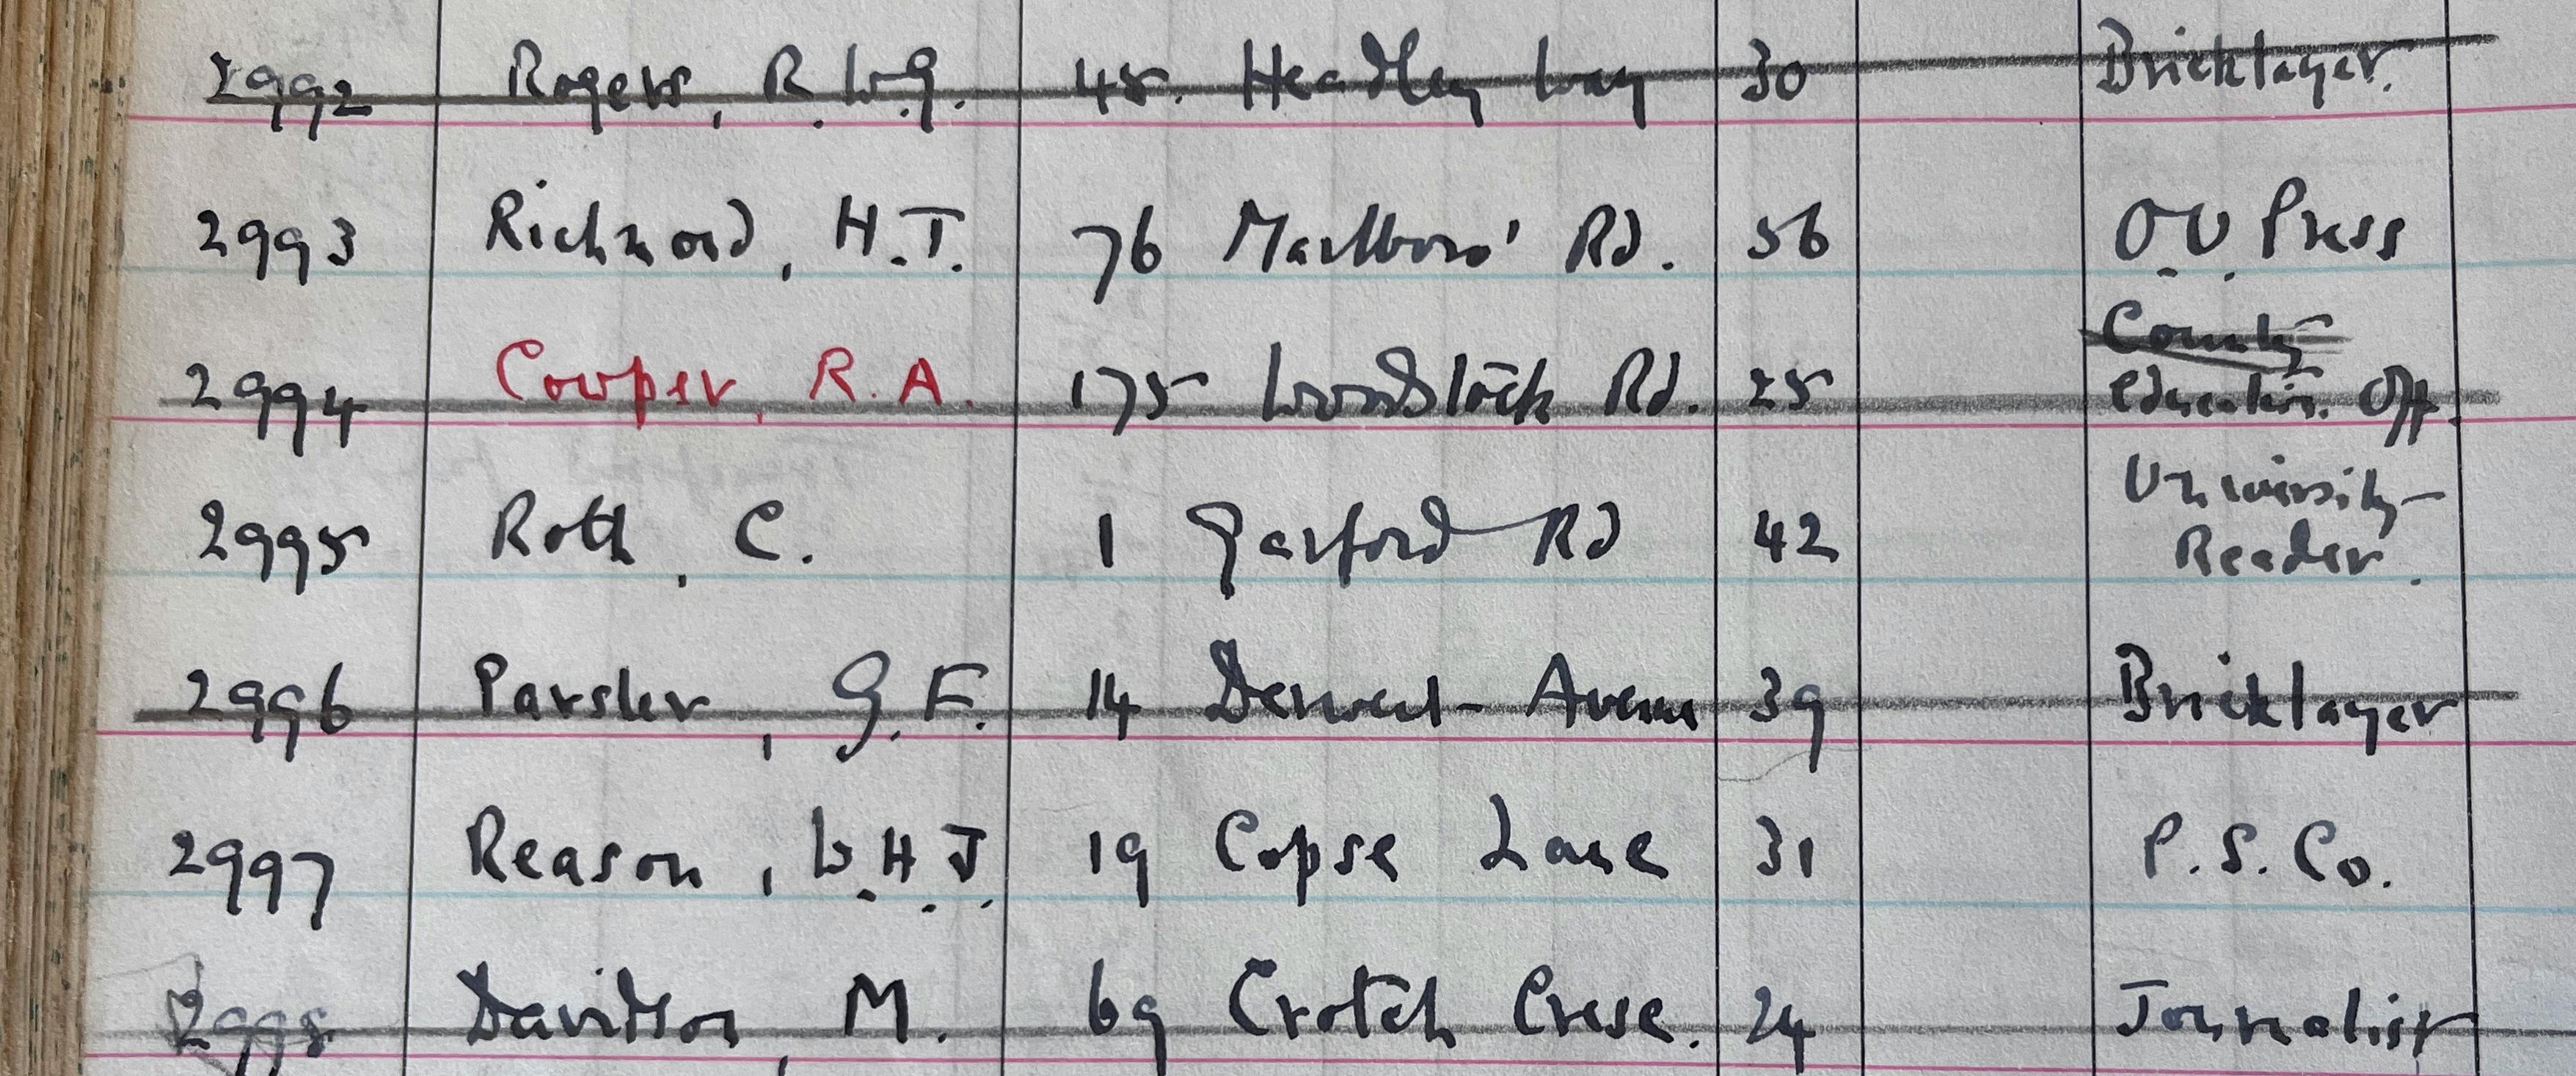 2992 Rogers, R. W.G. 45. Headley Way 30 Bricklayer.
2993 Richmond, H.T. 76 Marlboro' Rd. 56 O.U. Press
County
2994 Cowper, R.A. 175 Woodstock Rd. 25 Education. Off.
University
2995 Roth, C. 1 Garford Rd 42 Reader.
2996 Parsler, G.F. 14 Derwent Avenue 39 Bricklayer
2997 Reason, W.H.J. 19 Copse Lane 31 P.S. Co.
2998 Davidson, M. 69 Crotch Cresc. 24 Journalist